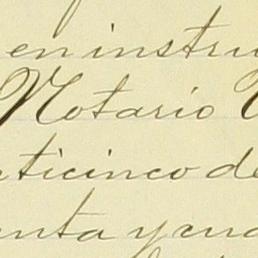 en instru
Notario
nticinco de
enta y cua